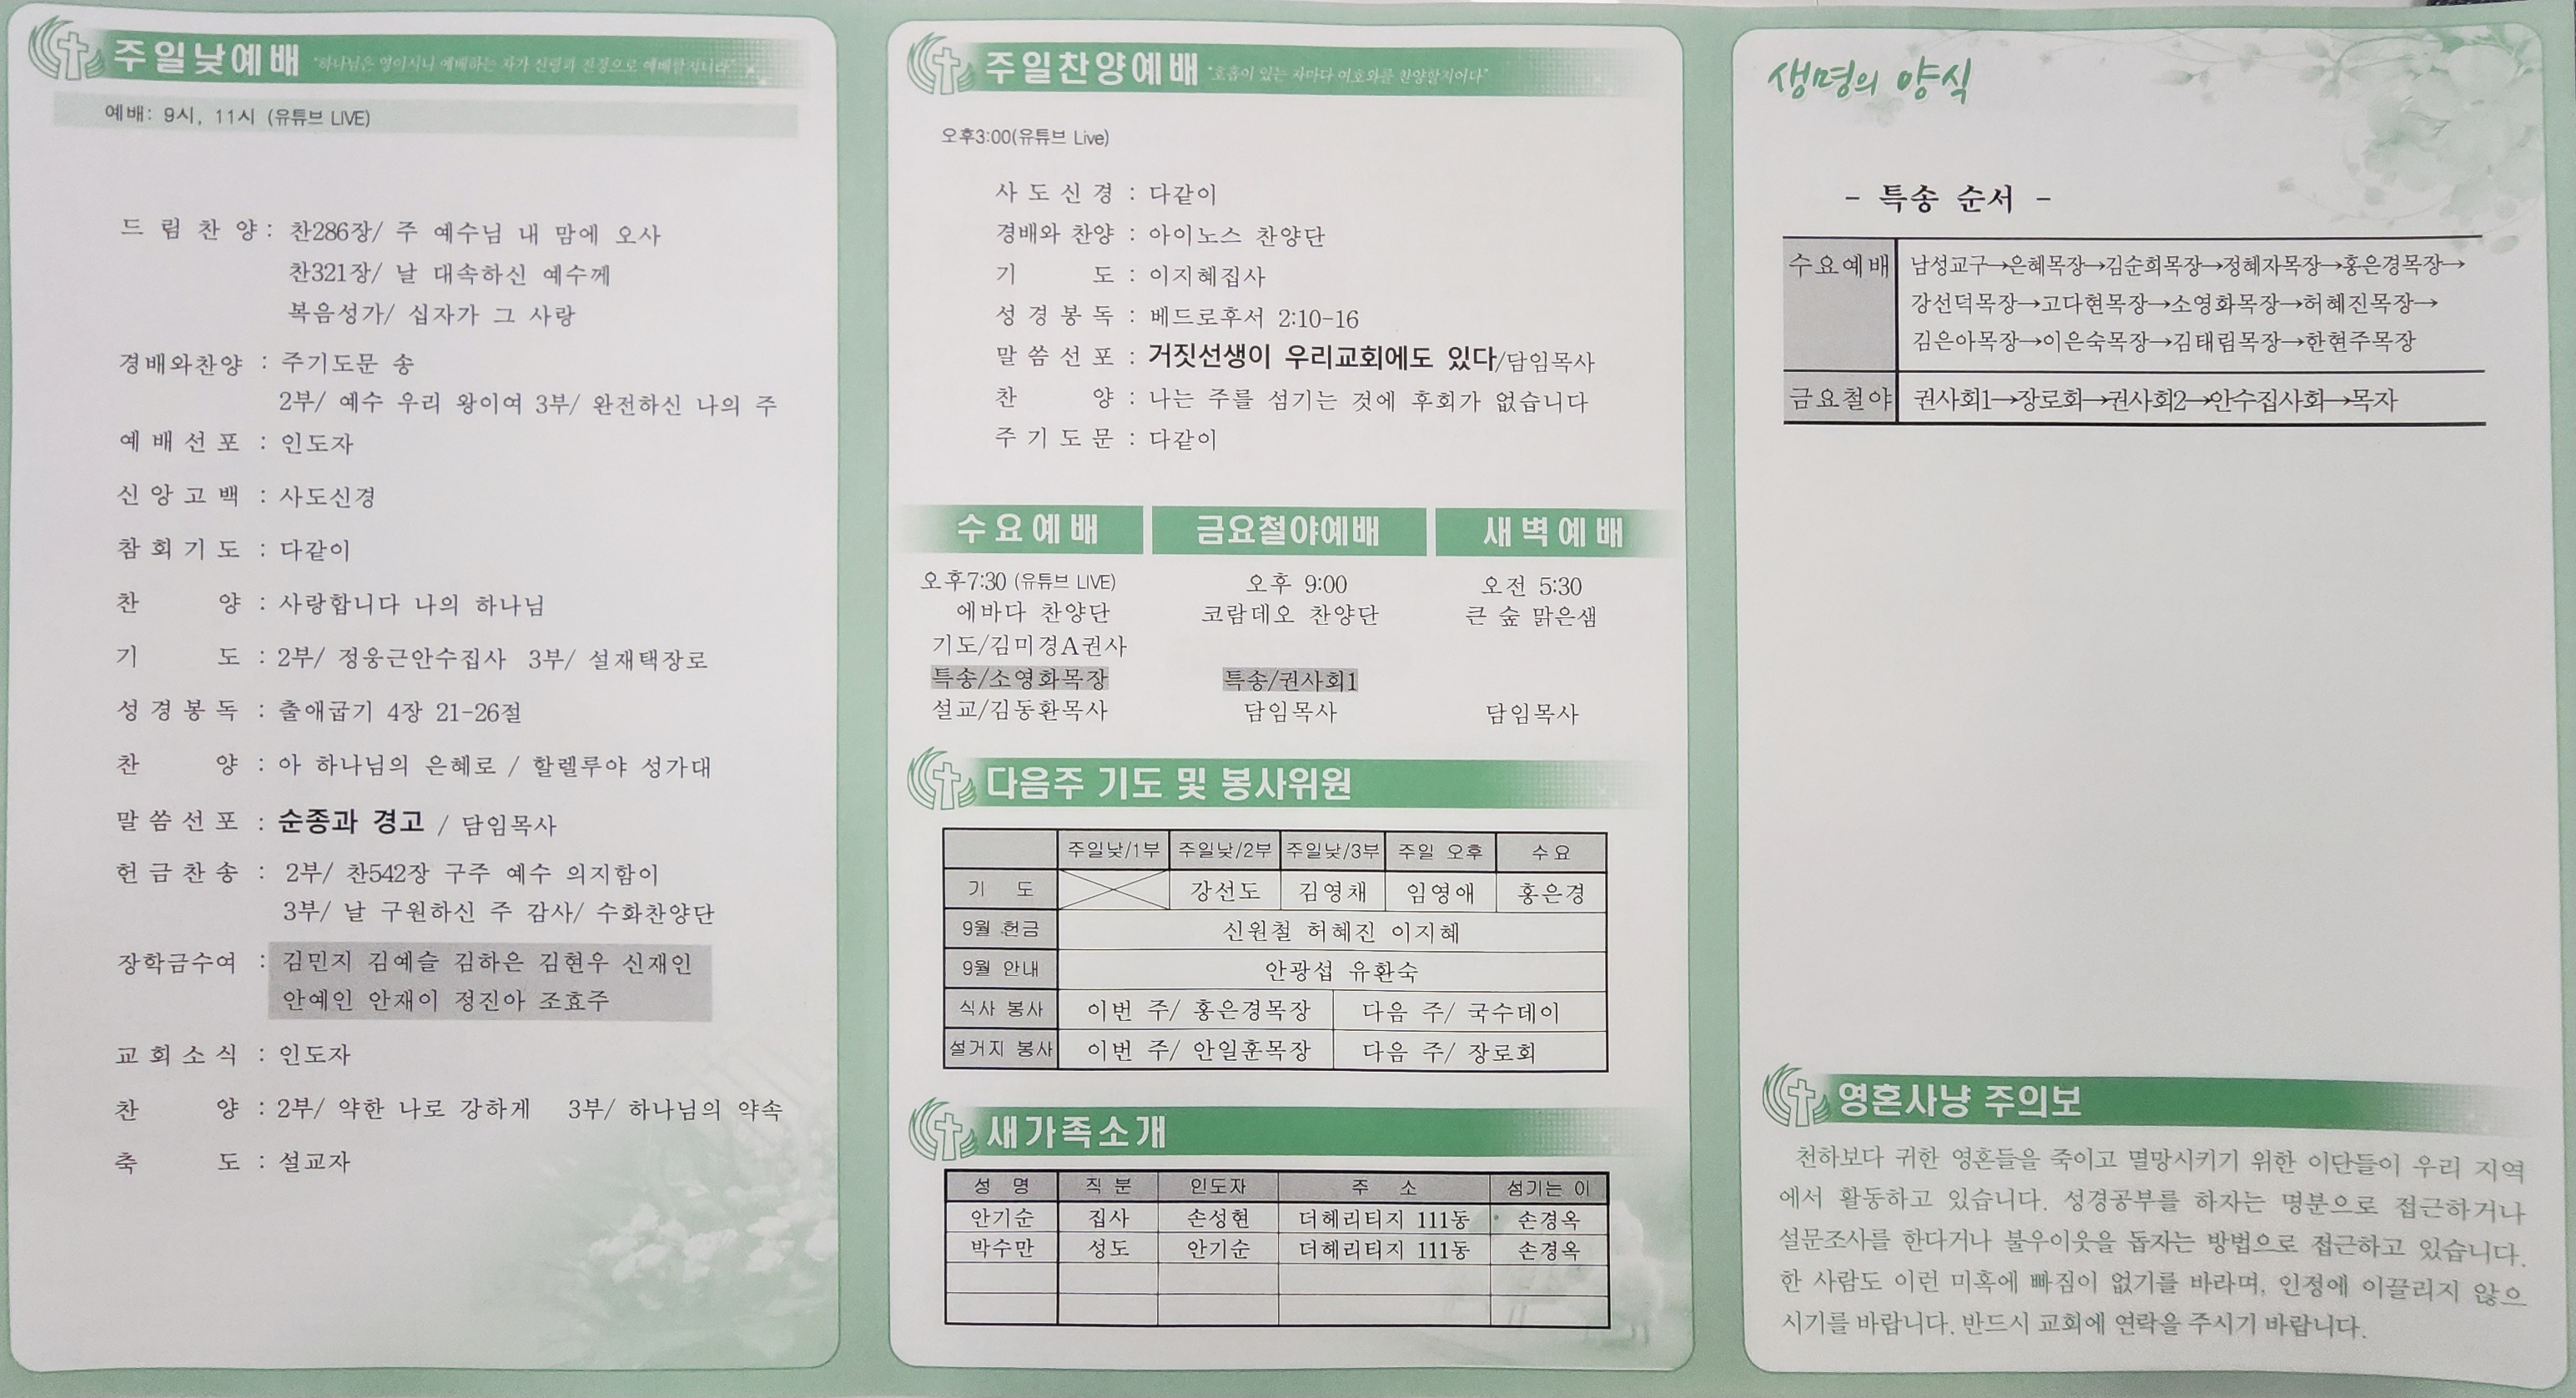 주일낮예배 "하나님은 영이시니 예배하는 자가 신령과 진정으로 예배할지니라"
예배: 9시, 11시 (유튜브 LIVE)
드 림 찬 양 : 찬286장/ 주 예수님 내 맘에 오사
찬321장/ 날 대속하신 예수께
복음성가/ 십자가 그 사랑
경배와찬양 : 주기도문 송
2부/ 예수 우리 왕이여 3부/ 완전하신 나의 주
예 배 선 포 : 인도자
신 앙 고 백 : 사도신경
참 회 기 도 : 다같이
찬 양 : 사랑합니다 나의 하나님
기 도 : 2부/ 정웅근안수집사 3부/ 설재택장로
성 경 봉 독 : 출애굽기 4장 21-26절
찬 양 : 아 하나님의 은혜로 / 할렐루야 성가대
말 씀 선 포 : 순종과 경고 / 담임목사
헌 금 찬 송 : 2부/ 찬542장 구주 예수 의지함이
3부/ 날 구원하신 주 감사/ 수화찬양단
장학금수여 : 김민지 김예슬 김하은 김현우 신재인
안예인 안재이 정진아 조효주
교 회 소 식 : 인도자
찬 양 : 2부/ 약한 나로 강하게 3부/ 하나님의 약속
축 도 : 설교자
주일찬양예배 "호흡이 있는 자마다 여호와를 찬양할지어다"
오후3:00(유튜브 Live)
사 도 신 경 : 다같이
경배와 찬양 : 아이노스 찬양단
기 도 : 이지혜집사
성 경 봉 독 : 베드로후서 2:10-16
말 씀 선 포 : 거짓선생이 우리교회에도 있다/담임목사
찬 양 : 나는 주를 섬기는 것에 후회가 없습니다
주 기 도 문 : 다같이
수요예배 금요철야예배 새벽예배
오후7:30 (유튜브 LIVE) 오후 9:00 오전 5:30
에바다 찬양단 코람데오 찬양단 큰 숲 맑은샘
기도/김미경A권사
특송/소영화목장 특송/권사회1
설교/김동환목사 담임목사 담임목사
다음주 기도 및 봉사위원
주일낮/1부 주일낮/2부 주일낮/3부 주일 오후 수요
기 도 강선도 김영채 임영애 홍은경
9월 헌금 신원철 허혜진 이지혜
9월 안내 안광섭 유환숙
식사 봉사 이번 주/ 홍은경목장 다음 주/ 국수데이
설거지 봉사 이번 주/ 안일훈목장 다음 주/ 장로회
새가족소개
성 명 직 분 인도자 주 소 섬기는 이
안기순 집사 손성현 더헤리티지 111동 손경옥
박수만 성도 안기순 더헤리티지 111동 손경옥
생명의 양식
- 특송 순서 -
수요예배 남성교구→은혜목장→김순희목장→정혜자목장→홍은경목장→
강선덕목장→고다현목장→소영화목장→허혜진목장→
김은아목장→이은숙목장→김태림목장→한현주목장
금요철야 권사회1→장로회→권사회2→안수집사회→목자
영혼사냥 주의보
천하보다 귀한 영혼들을 죽이고 멸망시키기 위한 이단들이 우리 지역
에서 활동하고 있습니다. 성경공부를 하자는 명분으로 접근하거나
설문조사를 한다거나 불우이웃을 돕자는 방법으로 접근하고 있습니다.
한 사람도 이런 미혹에 빠짐이 없기를 바라며, 인정에 이끌리지 않으
시기를 바랍니다. 반드시 교회에 연락을 주시기 바랍니다.